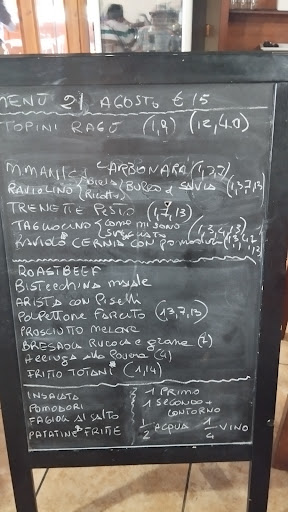 MENU 21 AGOSTO € 15
TOPINI RAGÚ (1,9) (12,4.0)
CARBONARA (1,3,7)
RAVIOLINO Bieta Ricotta BURRO e SALVIA (1,3,7,13)
TRENETTE PESTO (1,7,13)
COME MI SONO SVEGLIATO (1,3,4,13)
RAVIOLO CERNIA CON POMODORI
ROASTBEEF
BISTECCHINA MAIALE
ARISTA CON PISELLI
POLPETTONE FARCITO (1,3,7,13)
PROSCIUTTO MELONE
BRESAOLA RUCOLA e GRANA (7)
Aringa alla Povera (4)
FRITTO TOTANI (1,14)
INSALATA
POMODORI
FAGIOLI AL SALTO
PATATINE FRITTE
1 PRIMO
1 SECONDO +
CONTORNO
1/2 ACQUA 1/4 VINO